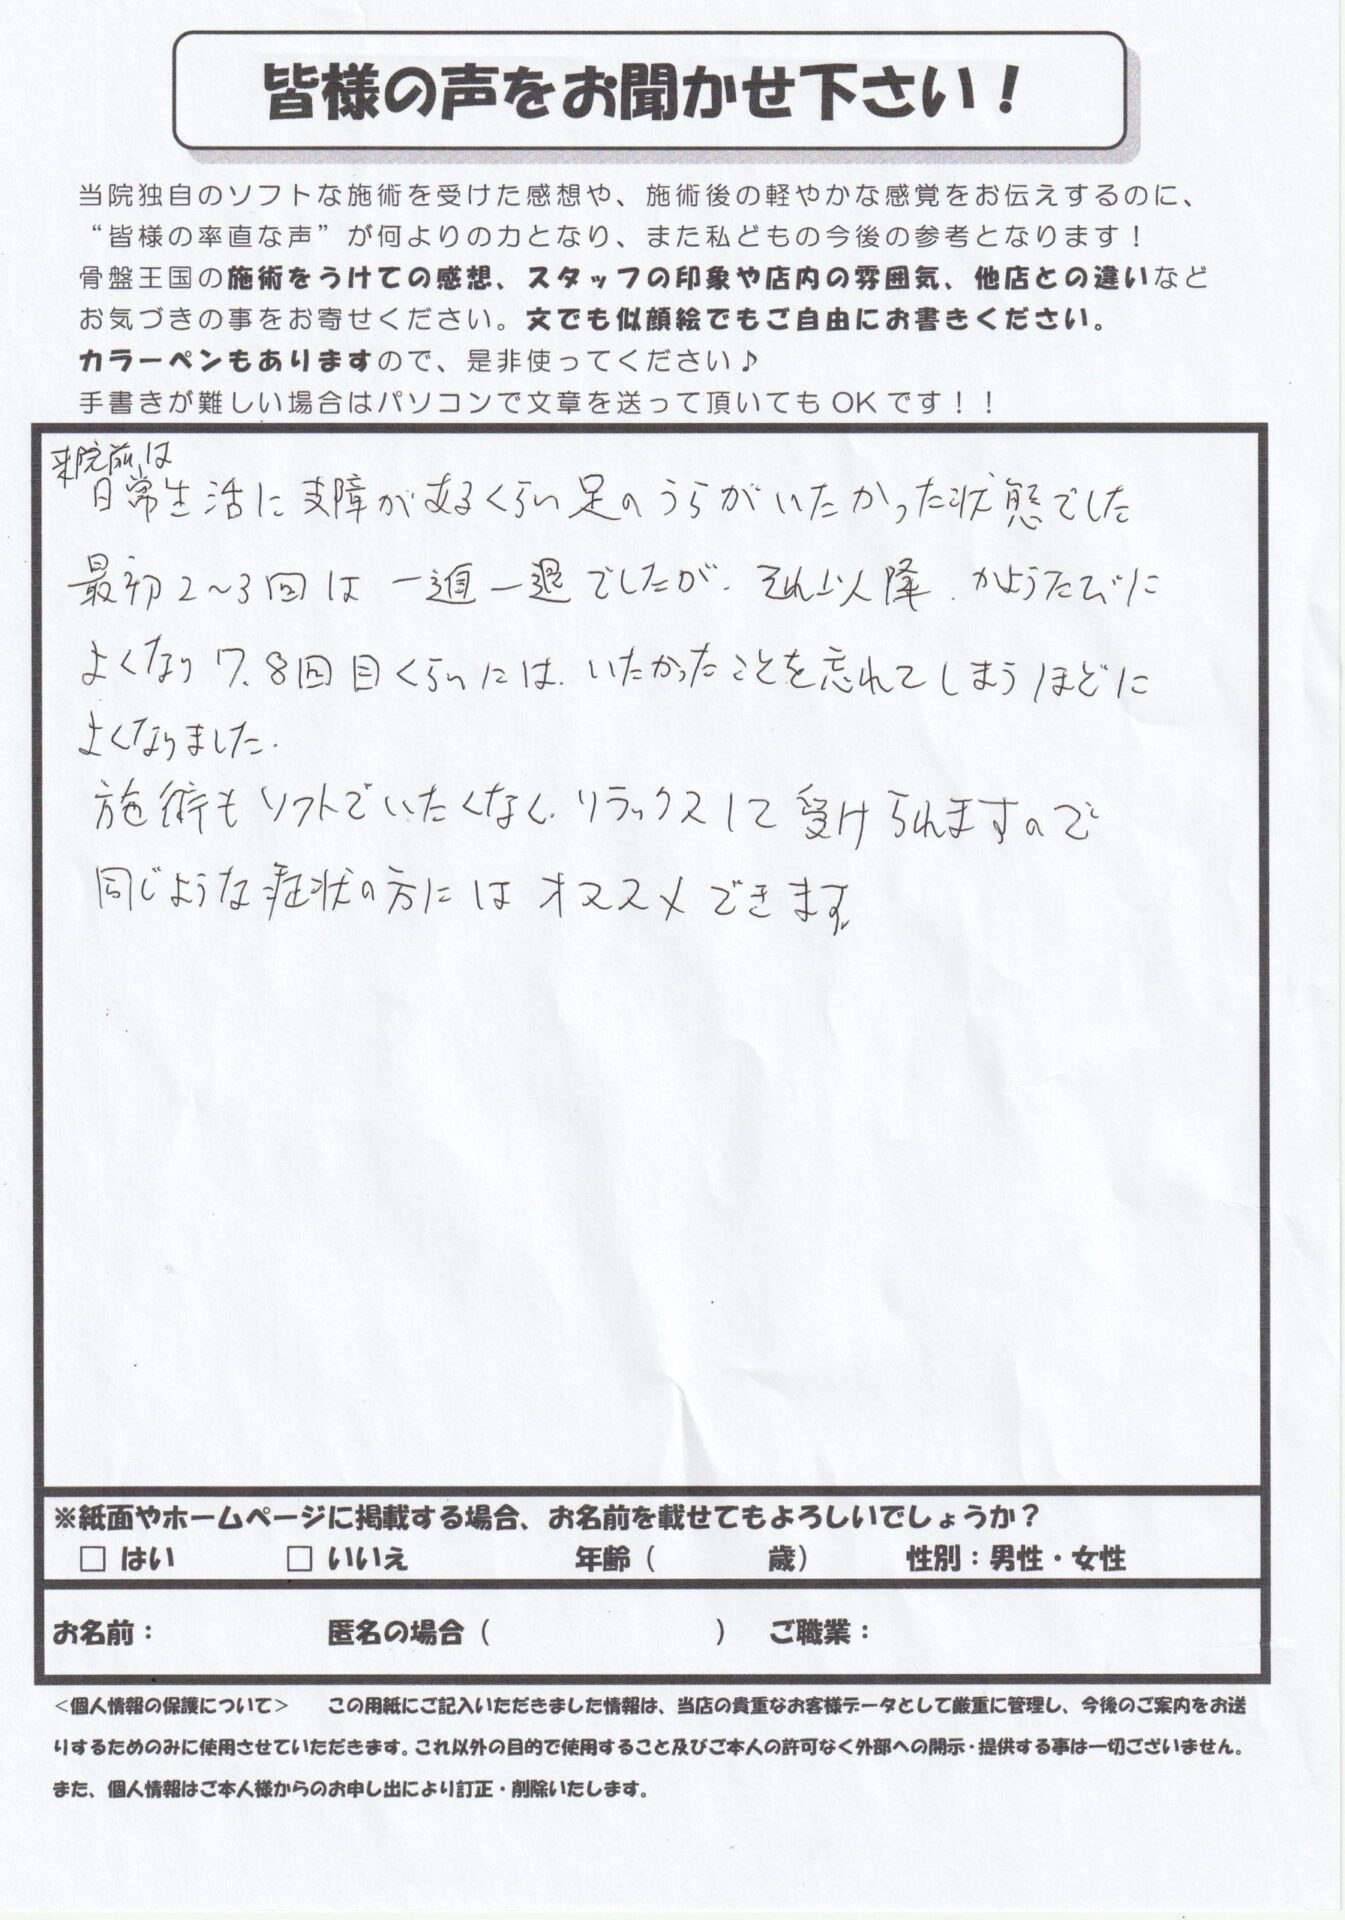 皆様の声をお聞かせ下さい！
当院独自のソフトな施術を受けた感想や、施術後の軽やかな感覚をお伝えするのに、
“皆様の率直な声”が何よりの力となり、また私どもの今後の参考となります！
骨盤王国の施術をうけての感想、スタッフの印象や店内の雰囲気、他店との違いなど
お気づきの事をお寄せください。文でも似顔絵でもご自由にお書きください。
カラーペンもありますので、是非使ってください♪
手書きが難しい場合はパソコンで文章を送って頂いてもOKです！！
来院前は
日常生活に支障があるくらい足のうらがいたかった状態でした
最初2～3回は一進一退でしたが、それ以降、かようたびに
よくなり7、8回目くらいには、いたかったことを忘れてしまうほどに
よくなりました。
施術もソフトでいたくなく、リラックスして受けられますので
同じような症状の方にはオススメできます。
※紙面やホームページに掲載する場合、お名前を載せてもよろしいでしょうか？
□ はい □ いいえ 年齢（ 歳） 性別：男性・女性
お名前： 匿名の場合（ ） ご職業：
＜個人情報の保護について＞ この用紙にご記入いただきました情報は、当店の貴重なお客様データとして厳重に管理し、今後のご案内をお送
りするためのみに使用させていただきます。これ以外の目的で使用すること及びご本人の許可なく外部への開示・提供する事は一切ございません。
また、個人情報はご本人様からのお申し出により訂正・削除いたします。